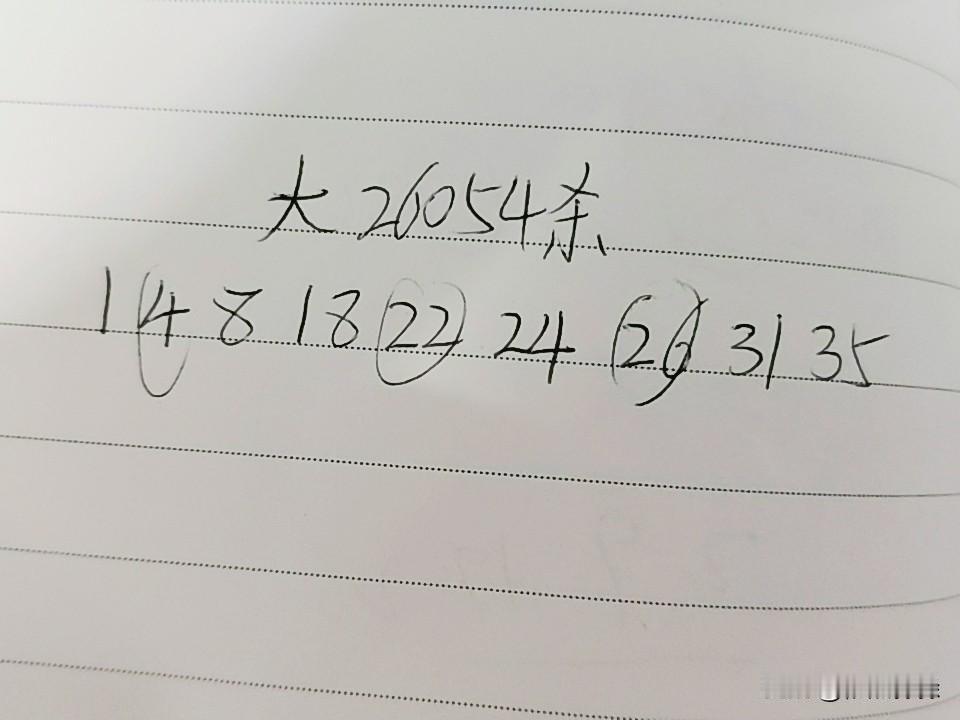 大26054杀
1 4 8 18 22 24 26 31 35